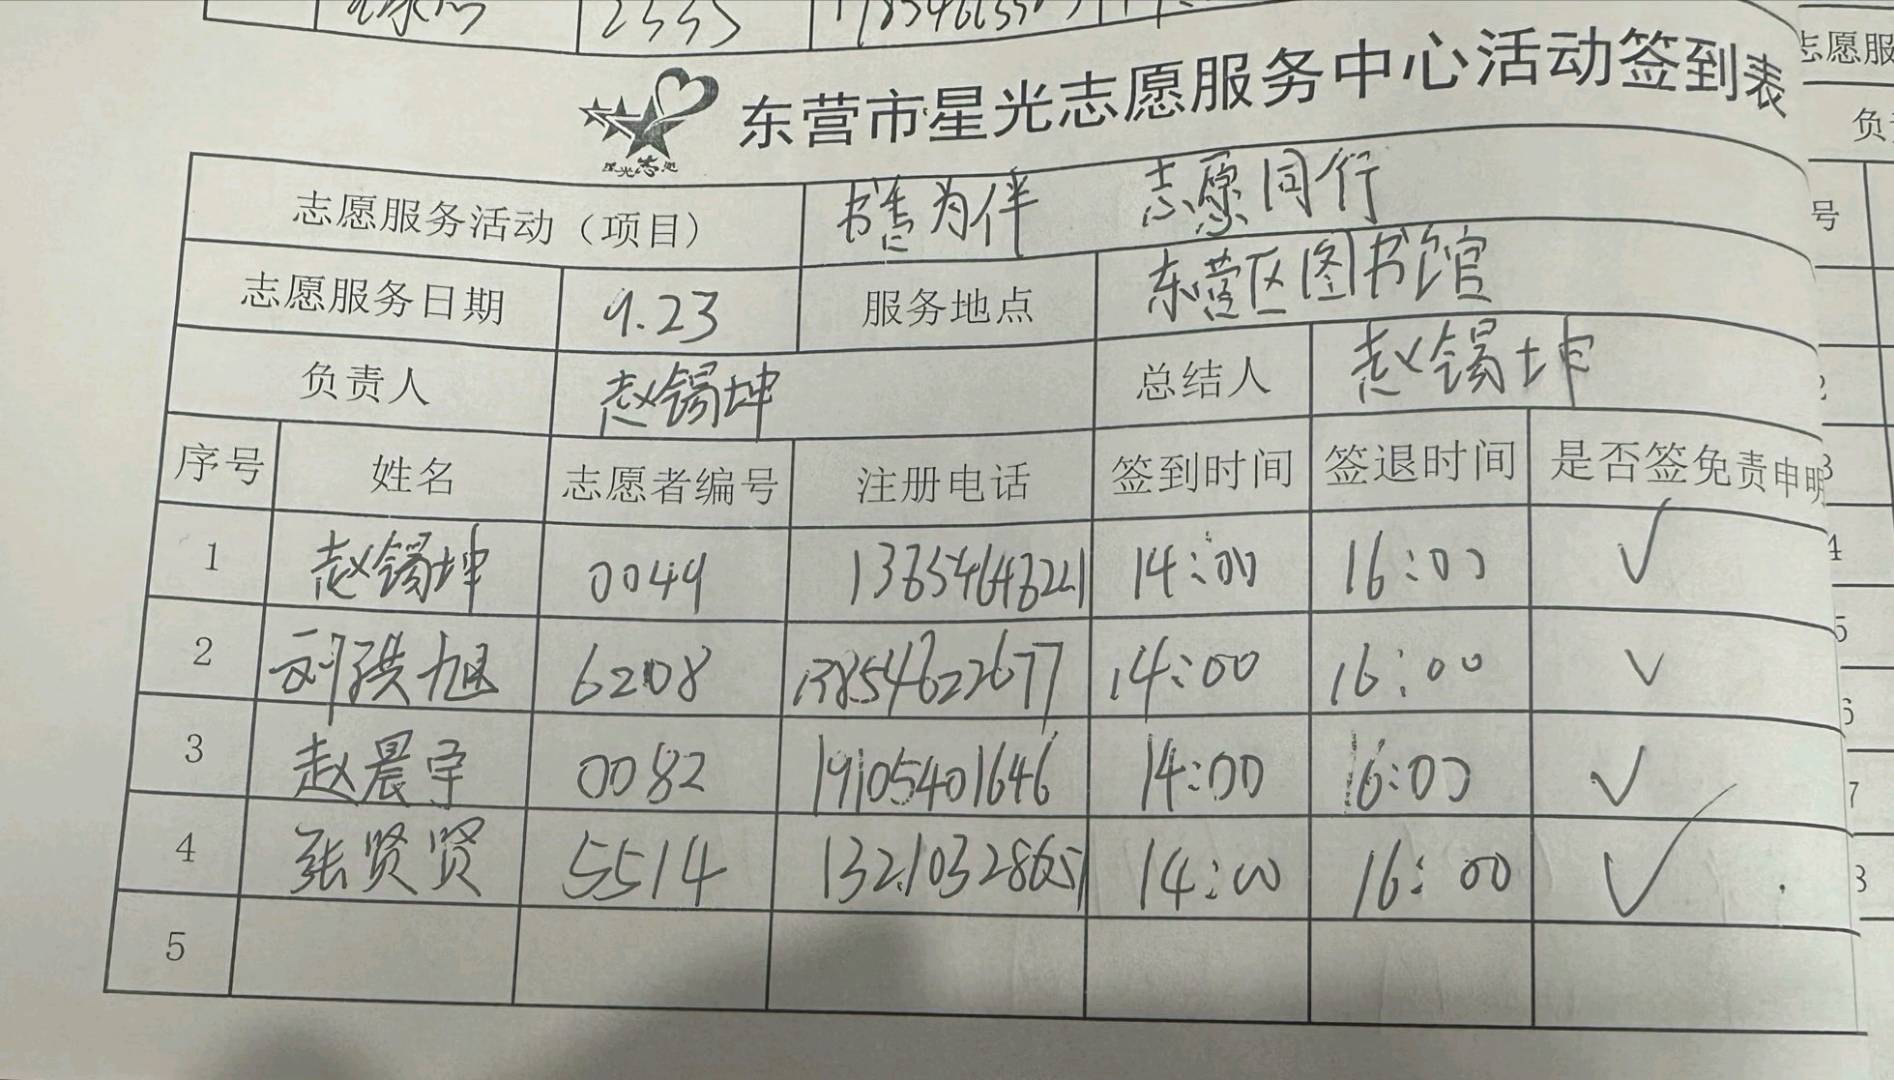 东营市星光志愿服务中心活动签到表
星光志愿
志愿服务活动（项目） 书香为伴 志愿同行
志愿服务日期 9.23 服务地点 东营区图书馆
负责人 赵锡坤 总结人 赵锡坤
序号 姓名 志愿者编号 注册电话 签到时间 签退时间 是否签免责申明
1 赵锡坤 0049 14:00 16:00 ✓
2 刘洪旭 6208 13854622677 14:00 16:00 ✓
3 赵晨宇 0082 19105401646 14:00 16:00 ✓
4 张贤贤 5514 13210328651 14:00 16:00 ✓
5
志愿服
负
号
2
3
4
5
6
7
8